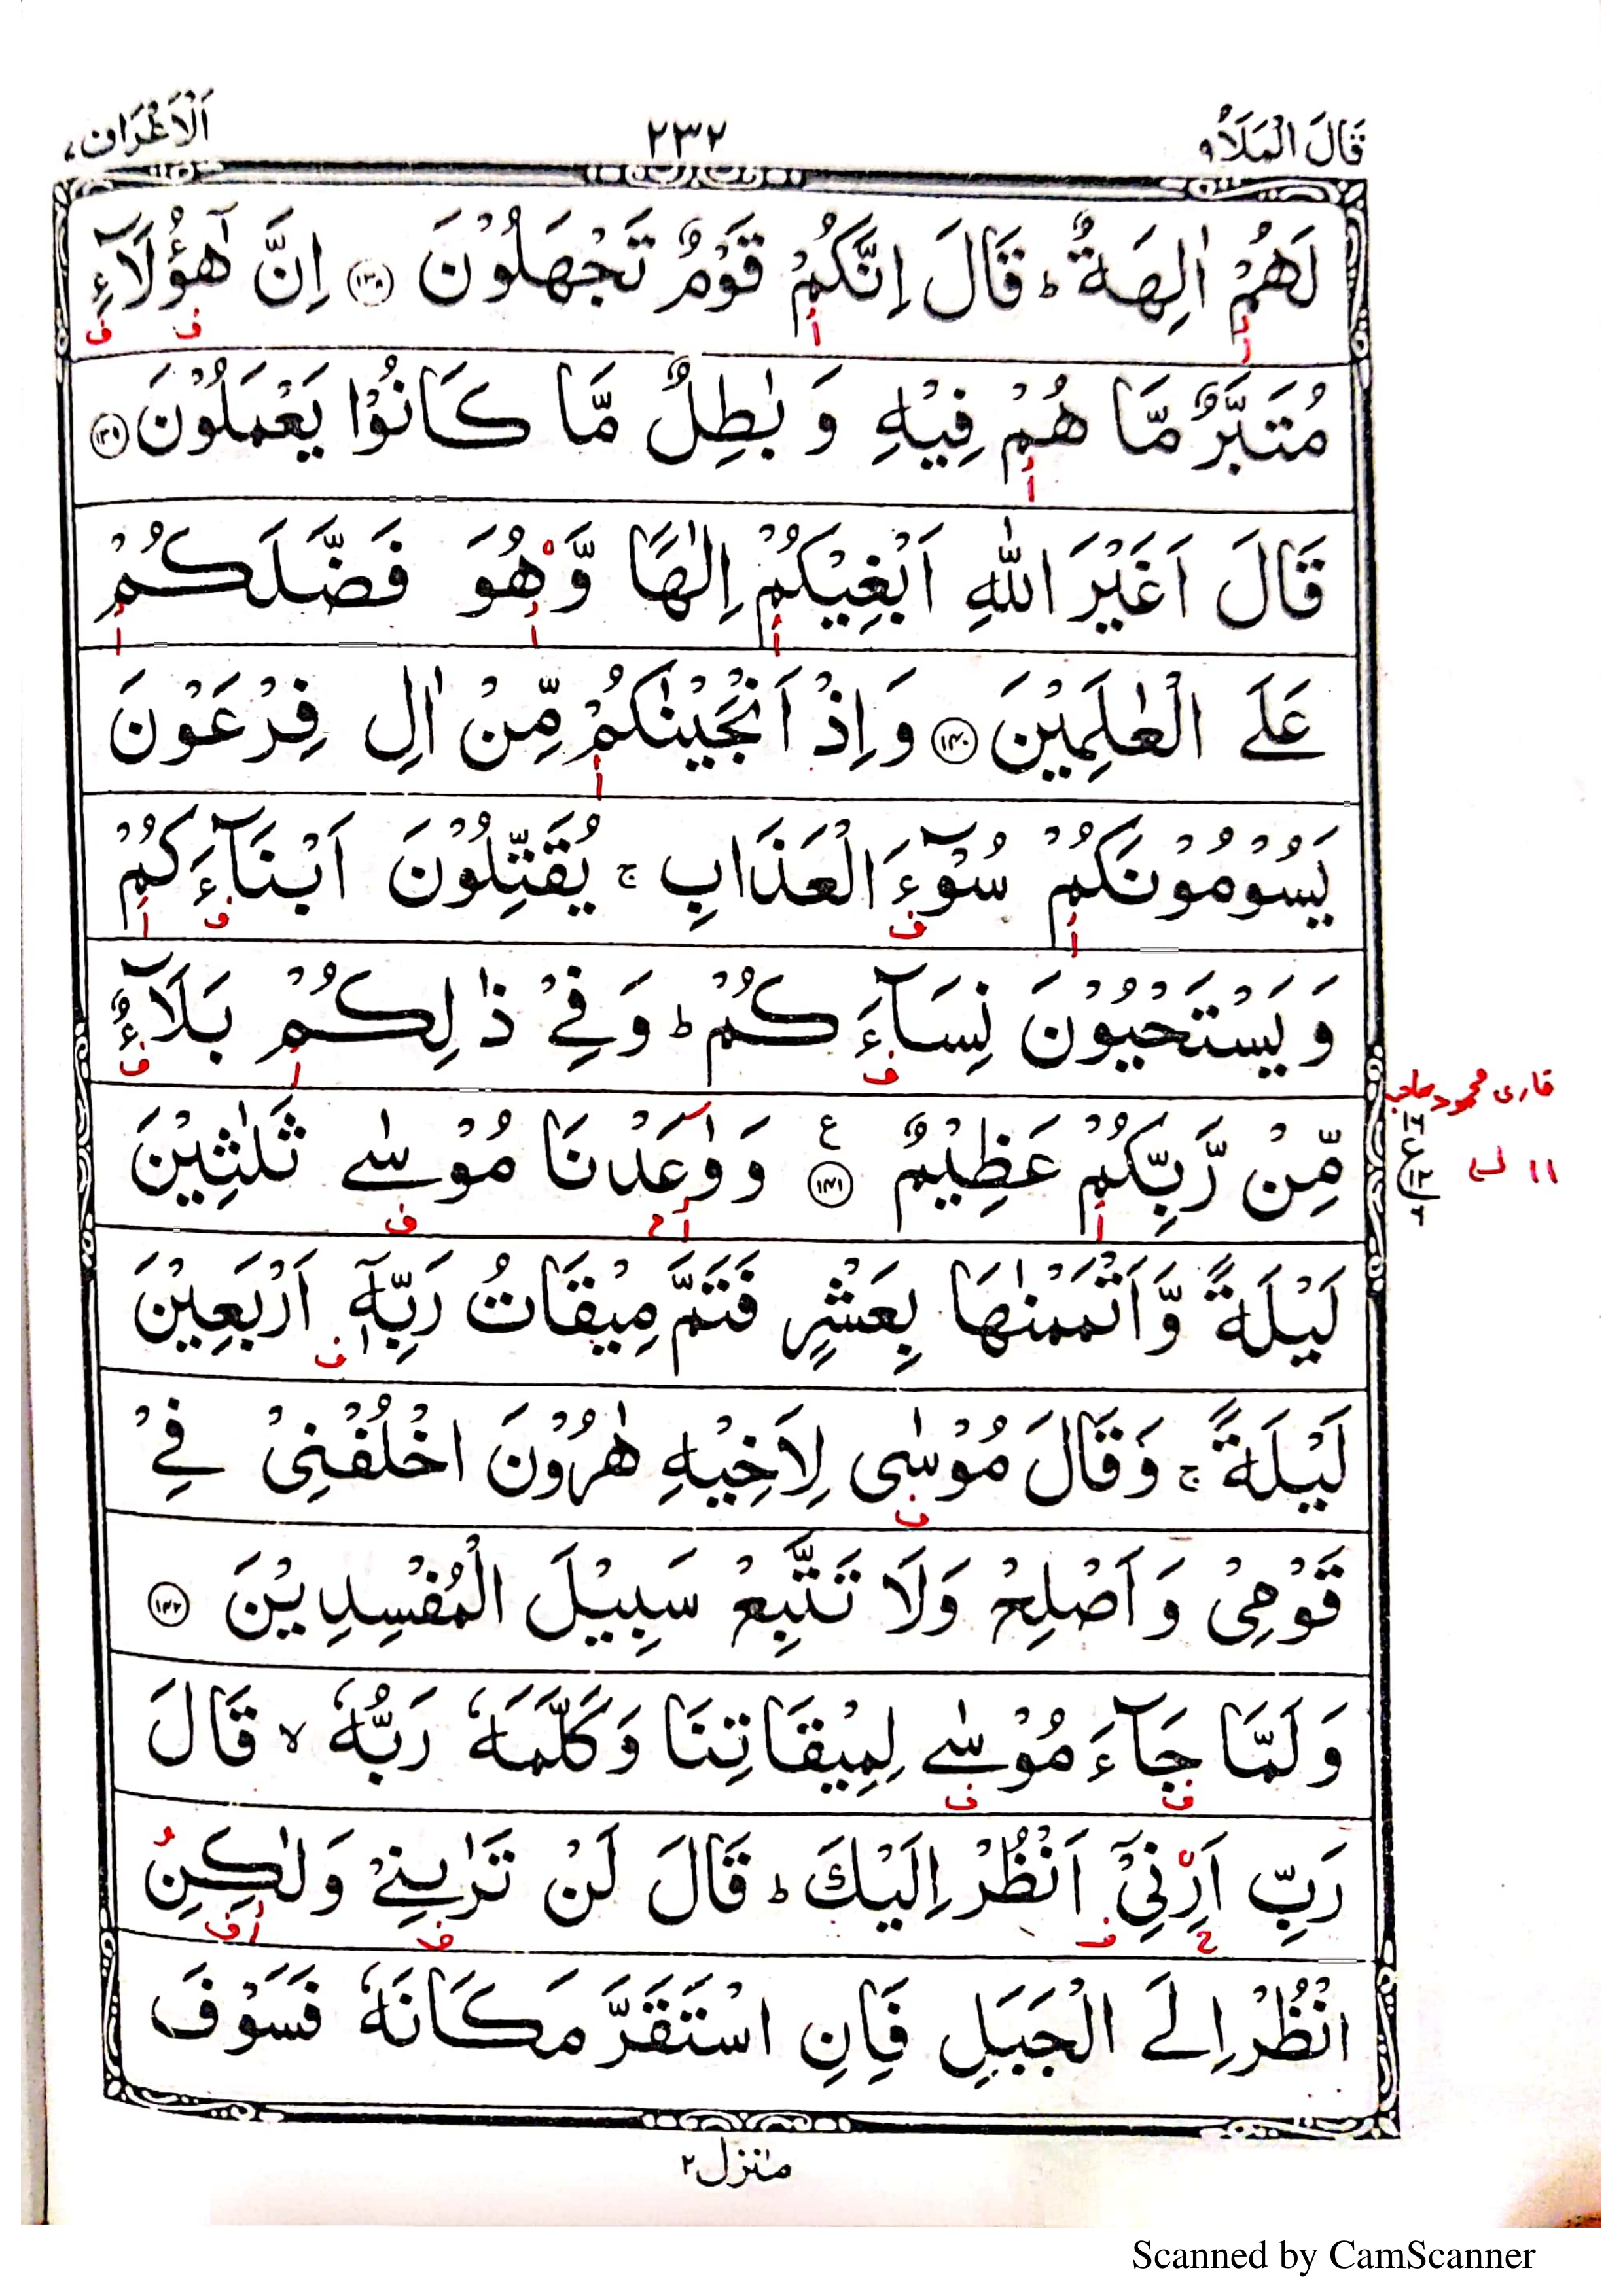 قَالَ الْمَلَاُ ٩
٢٣٢
اَلْاَعْرَاف ٧
لَهُمْ اٰلِهَةٌ ؕ قَالَ اِنَّكُمْ قَوْمٌ تَجْهَلُوْنَ ﴿١٣٨﴾ اِنَّ هٰٓؤُلَآءِ
مُتَبَّرٌ مَّا هُمْ فِيْهِ وَ بٰطِلٌ مَّا كَانُوْا يَعْمَلُوْنَ ﴿١٣٩﴾
قَالَ اَغَيْرَ اللّٰهِ اَبْغِيْكُمْ اِلٰهًا وَّهُوَ فَضَّلَكُمْ
عَلَى الْعٰلَمِيْنَ ﴿١٤٠﴾ وَاِذْ اَنْجَيْنٰكُمْ مِّنْ اٰلِ فِرْعَوْنَ
يَسُوْمُوْنَكُمْ سُوْٓءَ الْعَذَابِ ۚ يُقَتِّلُوْنَ اَبْنَآءَكُمْ
وَيَسْتَحْيُوْنَ نِسَآءَكُمْ ؕ وَفِيْ ذٰلِكُمْ بَلَآءٌ
مِّنْ رَّبِّكُمْ عَظِيْمٌ ﴿١٤١﴾ ع وَوٰعَدْنَا مُوْسٰى ثَلٰثِيْنَ
قاری محمود صاحب
١١
لَيْلَةً وَّاَتْمَمْنٰهَا بِعَشْرٍ فَتَمَّ مِيْقَاتُ رَبِّهٖٓ اَرْبَعِيْنَ
لَيْلَةً ۚ وَقَالَ مُوْسٰى لِاَخِيْهِ هٰرُوْنَ اخْلُفْنِيْ فِيْ
قَوْمِيْ وَاَصْلِحْ وَلَا تَتَّبِعْ سَبِيْلَ الْمُفْسِدِيْنَ ﴿١٤٢﴾
وَلَمَّا جَآءَ مُوْسٰى لِمِيْقَاتِنَا وَكَلَّمَهٗ رَبُّهٗ ۙ قَالَ
رَبِّ اَرِنِيْٓ اَنْظُرْ اِلَيْكَ ؕ قَالَ لَنْ تَرٰىنِيْ وَلٰكِنِ
انْظُرْ اِلَى الْجَبَلِ فَاِنِ اسْتَقَرَّ مَكَانَهٗ فَسَوْفَ
منزل ٢
Scanned by CamScanner